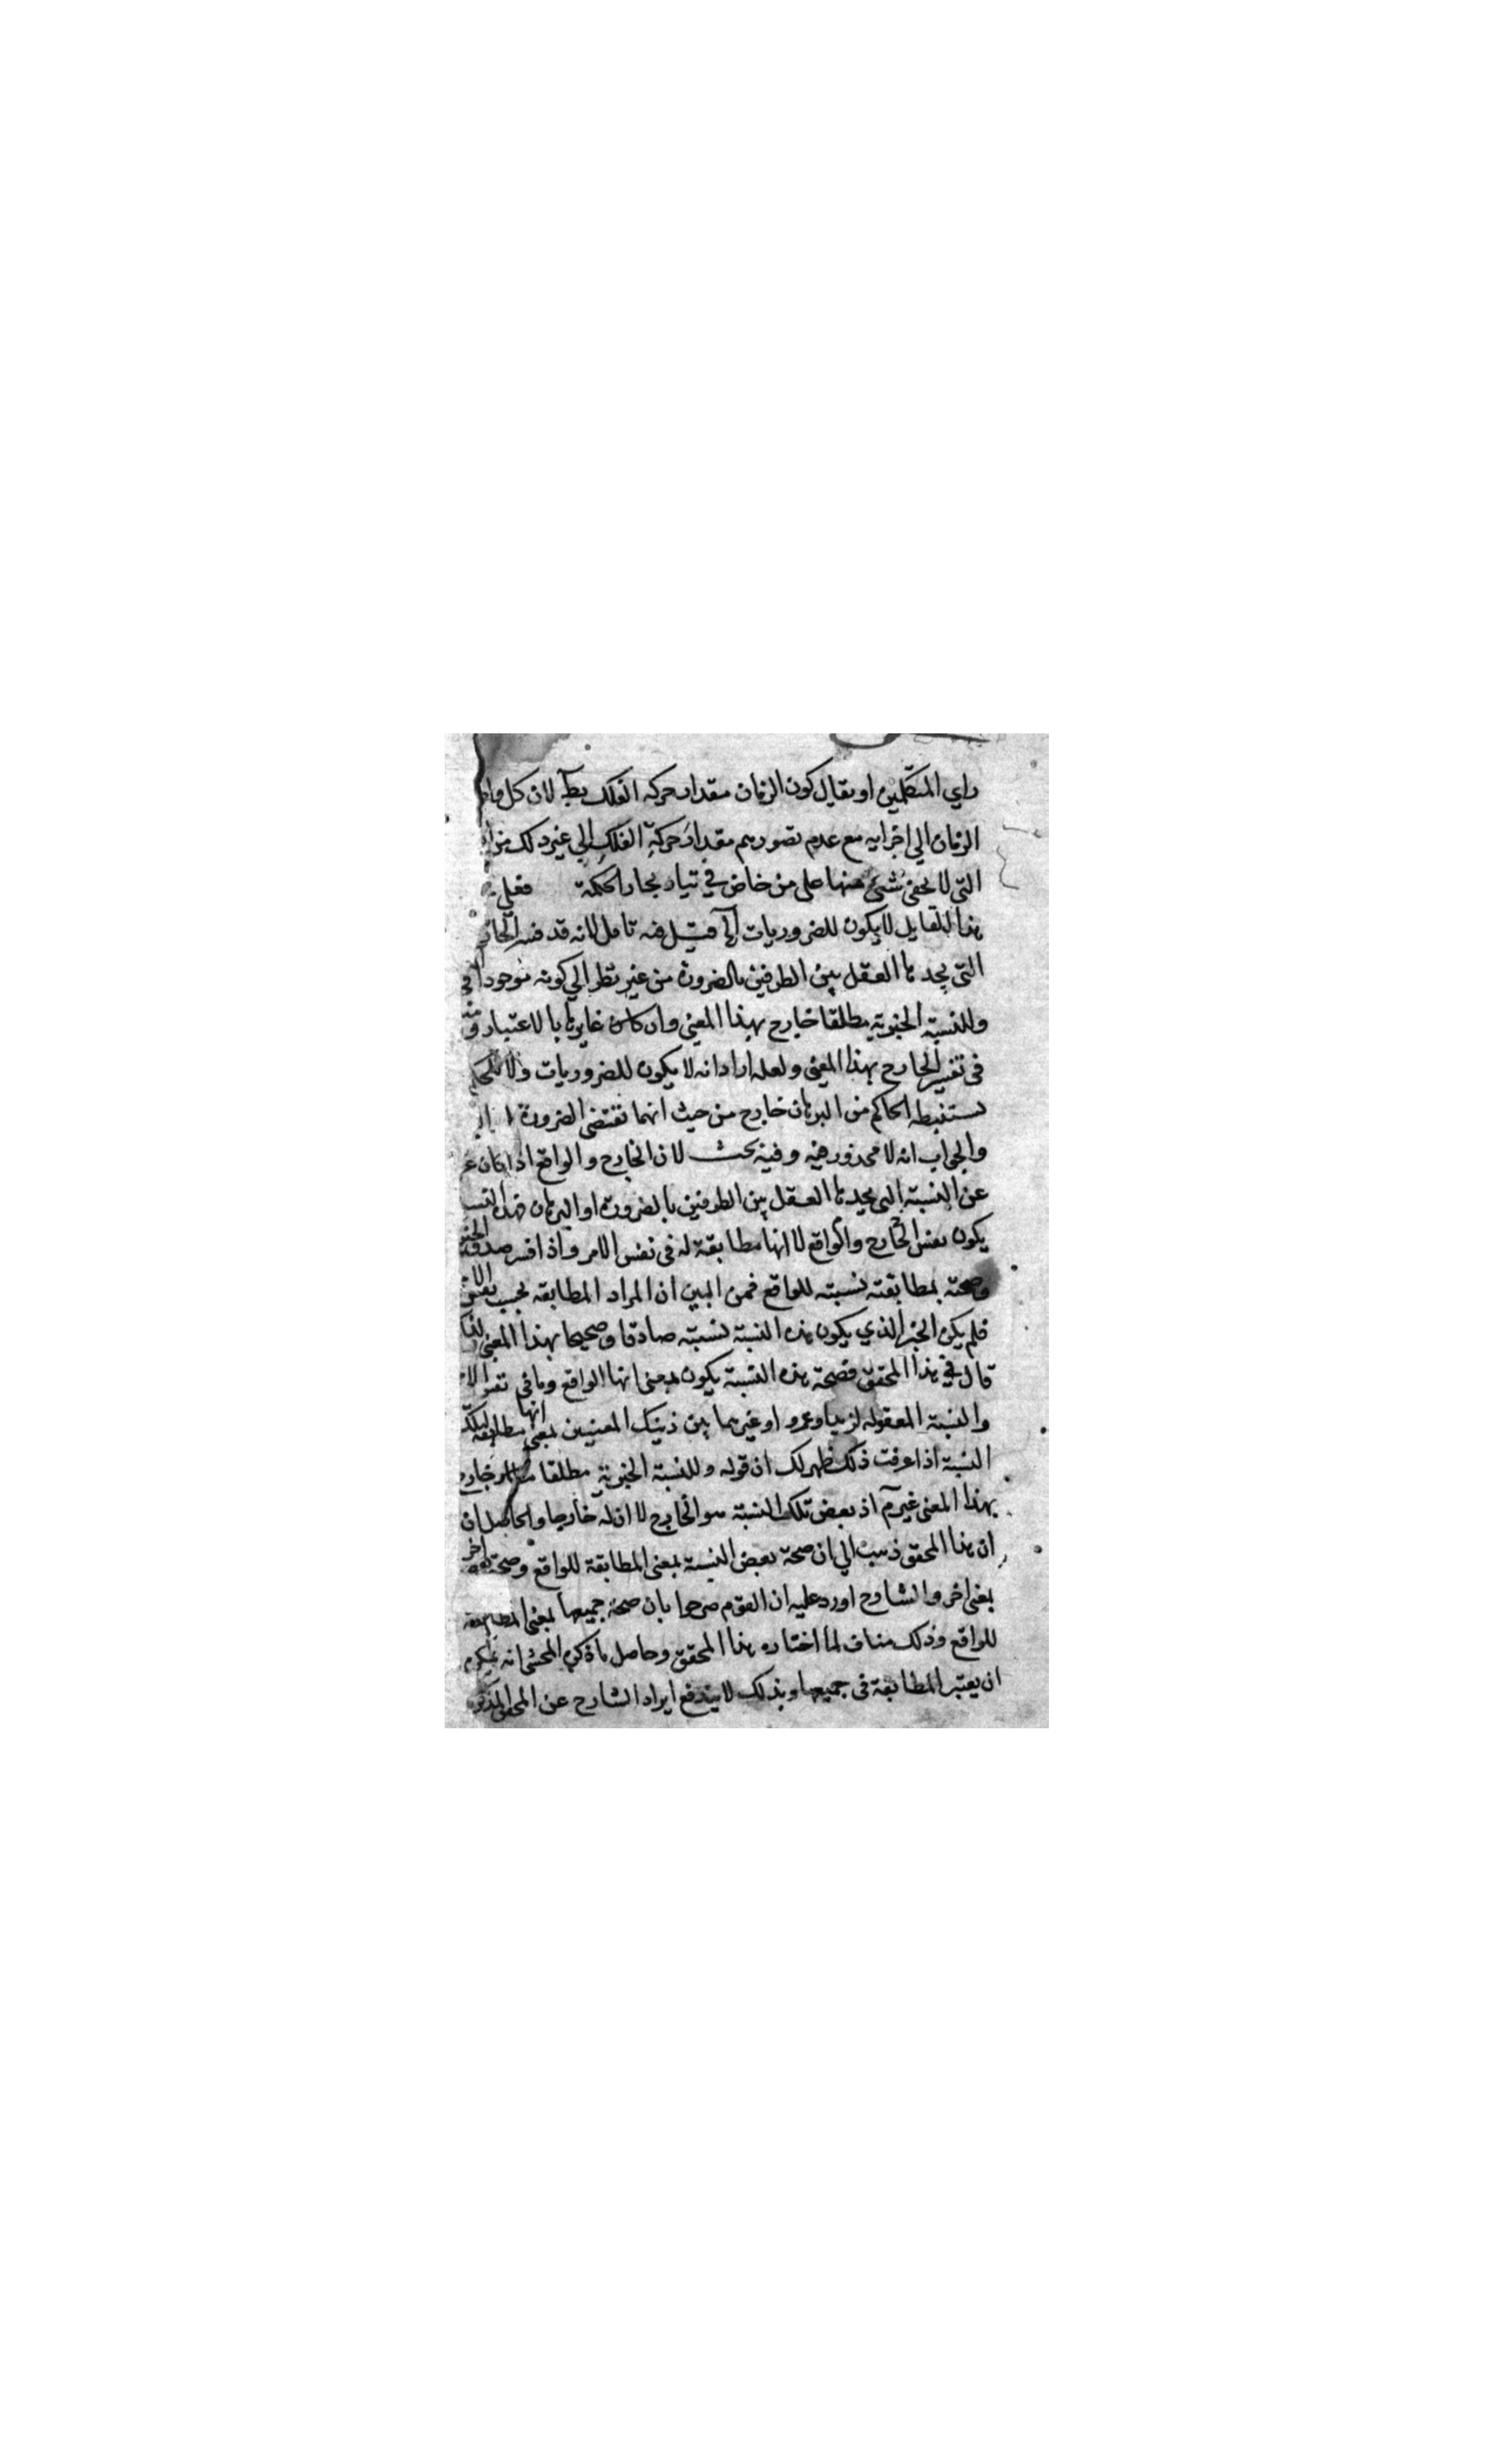 راي المتكلمين او يقال كون الزمان مقدار حركه الفلك بط لان كل
الزمان الي اجزايه مع عدم تصورهم مقدار حركة الفلك الي غير ذلك من
التي لا يخفي شئ منها علي من خاض في تيار بحار الحكمة فعلي
هذا القايل لا يكون للضروريات الخ قيل فيه تامل لانه قد فسر الخارج
التي يجدها العقل بين الطرفين بالضرورة من غير نظر الي كونه موجودا في
وللنسبة الخبرية مطلقا خارج بهذا المعني وان كان غايرها بالاعتبار
في تفسير الخارج بهذا المعني ولعله اراد انه لا يكون للضروريات ولا
يستنبطه الحاكم من البرهان خارج من حيث انهما تقتضي الضرورة
والجواب انه لا محذور فيه وفيه بحث لان الخارج والواقع اذا كان
عن النسبة التي يجدها العقل بين الطرفين بالضرورة او البرهان فهذه النسبة
يكون نفس الخارج والواقع لا انها مطابقة له في نفس الامر واذا فسر صدق الخبر
وصحته بمطابقته نسبته للواقع فمن البين ان المراد المطابقه بحسب نفس الامر
فلم يكن الخبر الذي يكون هذه النسبة نسبته صادقا وصحيحا بهذا المعني
قال في هذا المحقق فصحة هذه النسبة يكون بمعني انها الواقع وما في نفس الامر
والنسبة المعقوله لزيد او عمرو او غيرهما بين ذينك المعنيين بمعني انها مطابقه لتلك
النسبة اذا عرفت ذلك ظهر لك ان قوله وللنسبة الخبرية مطلقا خارج
بهذا المعني غير م اذ بعض تلك النسبة هو الخارج لا ان له خارجا والحاصل ان
ان هذا المحقق ذهب الي ان صحة بعض النسبة بمعني المطابقة للواقع وصحة اخر
بمعني اخر والشارح اورد عليه ان القوم صرحوا بان صحة جميعها بمعني المطابقة
للواقع وذلك مناف لما اختاره هذا المحقق وحاصل ما ذكره المحشي انه يمكن
ان يعتبر المطابقة في جميعها وبذلك لا يندفع ايراد الشارح عن المحقق المذكور